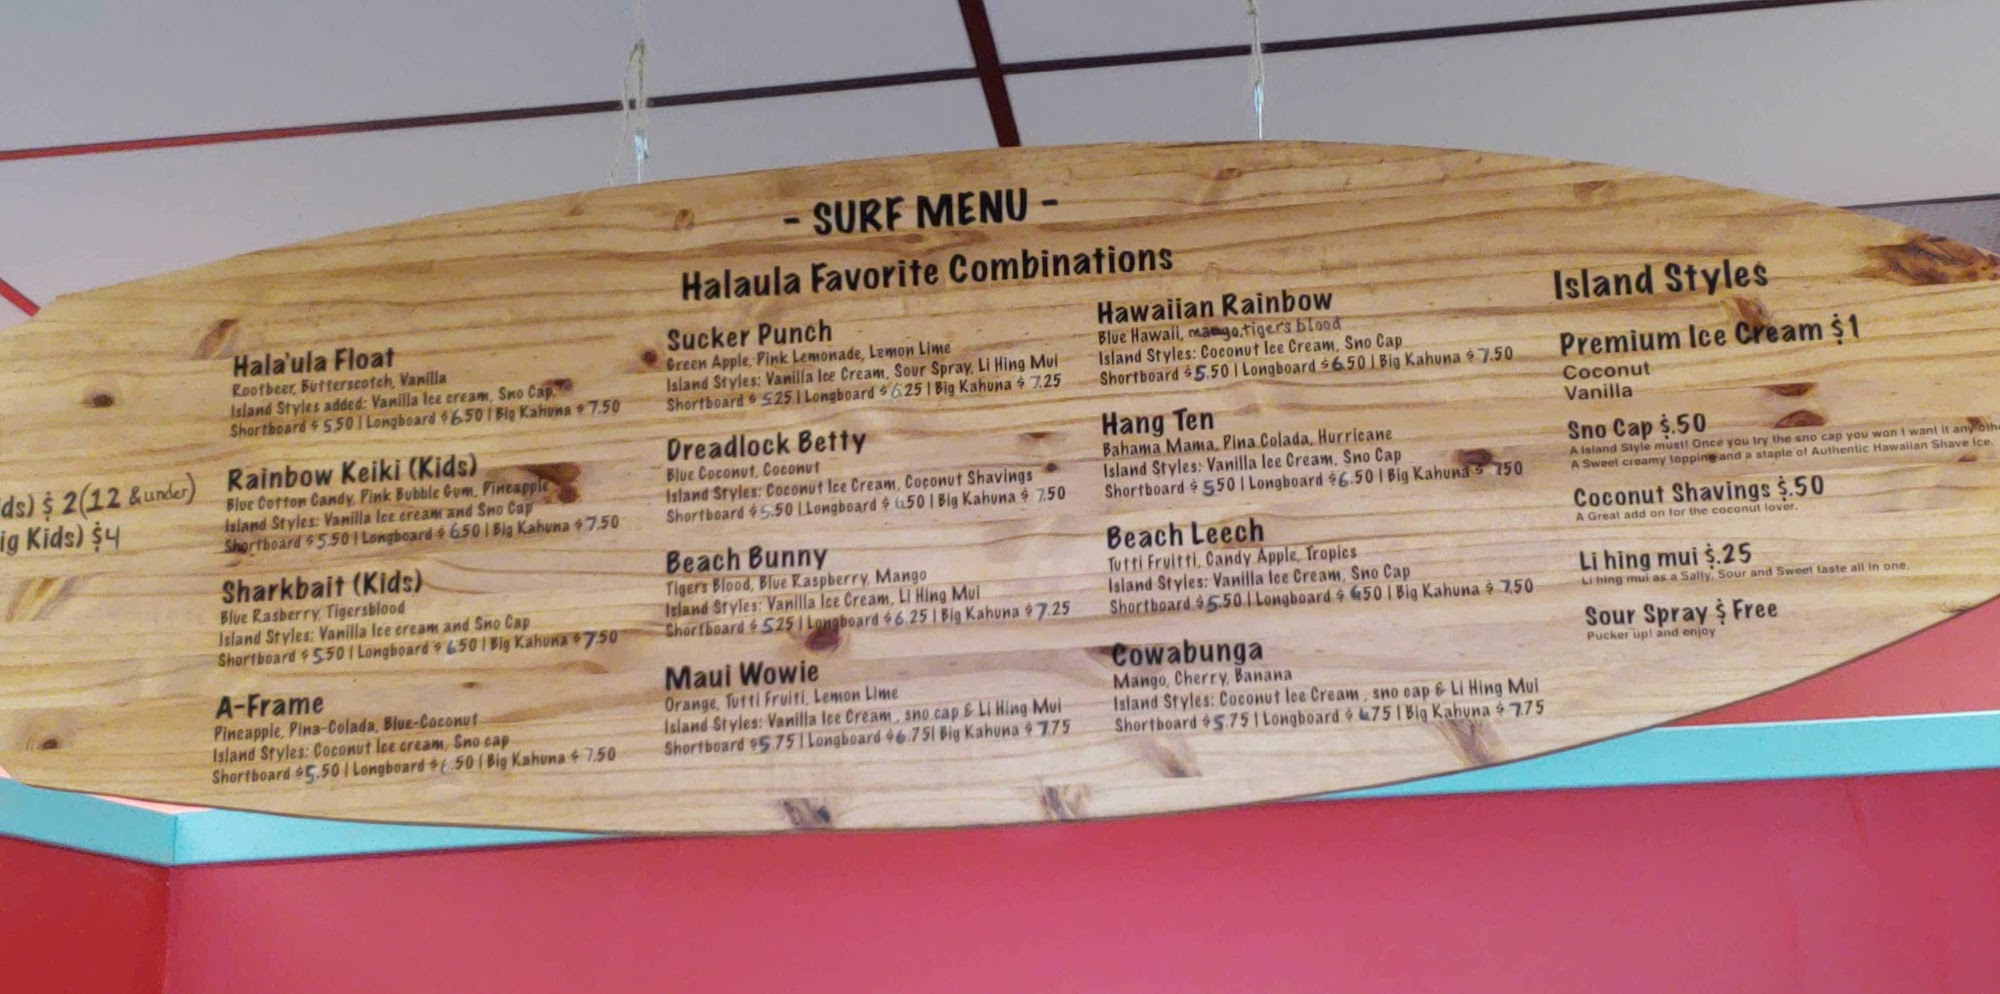 - SURF MENU -
Halaula Favorite Combinations
ds) $ 2(12 & under)
ig Kids) $4
Hala'ula Float
Rootbeer, Butterscotch, Vanilla
Island Styles added: Vanilla Ice cream, Sno Cap,
Shortboard $ 5.50 | Longboard $6.50 | Big Kahuna $7.50
Rainbow Keiki (Kids)
Blue Cotton Candy, Pink Bubble Gum, Pineapple
Island Styles: Vanilla Ice cream and Sno Cap
Shortboard $5.50 | Longboard $ 6.50 | Big Kahuna $7.50
Sharkbait (Kids)
Blue Rasberry, Tigersblood
Island Styles: Vanilla Ice cream and Sno Cap
Shortboard $5.50 | Longboard $ 6.50 | Big Kahuna $7.50
A-Frame
Pineapple, Pina-Colada, Blue-Coconut
Island Styles: Coconut Ice cream, Sno cap
Shortboard $5.50 | Longboard $6.50 | Big Kahuna $ 7.50
Sucker Punch
Green Apple, Pink Lemonade, Lemon Lime
Island Styles: Vanilla Ice Cream, Sour Spray, Li Hing Mui
Shortboard $ 5.25 | Longboard $6.25 | Big Kahuna $ 7.25
Dreadlock Betty
Blue Coconut, Coconut
Island Styles: Coconut Ice Cream, Coconut Shavings
Shortboard $5.50 | Longboard $ 6.50 | Big Kahuna $ 7.50
Beach Bunny
Tigers Blood, Blue Raspberry, Mango
Island Styles: Vanilla Ice Cream, Li Hing Mui
Shortboard $ 5.25 | Longboard $6.25 | Big Kahuna $ 7.25
Maui Wowie
Orange, Tutti Fruiti, Lemon Lime
Island Styles: Vanilla Ice Cream , sno cap & Li Hing Mui
Shortboard $5.75 | Longboard $6.75| Big Kahuna $ 7.75
Hawaiian Rainbow
Blue Hawaii, mango, tigers blood
Island Styles: Coconut Ice Cream, Sno Cap
Shortboard $5.50 | Longboard $6.50 | Big Kahuna $ 7.50
Hang Ten
Bahama Mama, Pina Colada, Hurricane
Island Styles: Vanilla Ice Cream, Sno Cap
Shortboard $ 5.50 | Longboard $6.50 | Big Kahuna $ 7.50
Beach Leech
Tutti Fruitti, Candy Apple, Tropics
Island Styles: Vanilla Ice Cream, Sno Cap
Shortboard $5.50 | Longboard $ 6.50 | Big Kahuna $ 7.50
Cowabunga
Mango, Cherry, Banana
Island Styles: Coconut Ice Cream , sno cap & Li Hing Mui
Shortboard $5.75 | Longboard $ 6.75 | Big Kahuna $ 7.75
Island Styles
Premium Ice Cream $1
Coconut
Vanilla
Sno Cap $.50
A Island Style must! Once you try the sno cap you won t want it any othe
A Sweet creamy topping and a staple of Authentic Hawaiian Shave Ice.
Coconut Shavings $.50
A Great add on for the coconut lover.
Li hing mui $.25
Li hing mui as a Salty, Sour and Sweet taste all in one.
Sour Spray $ Free
Pucker up! and enjoy